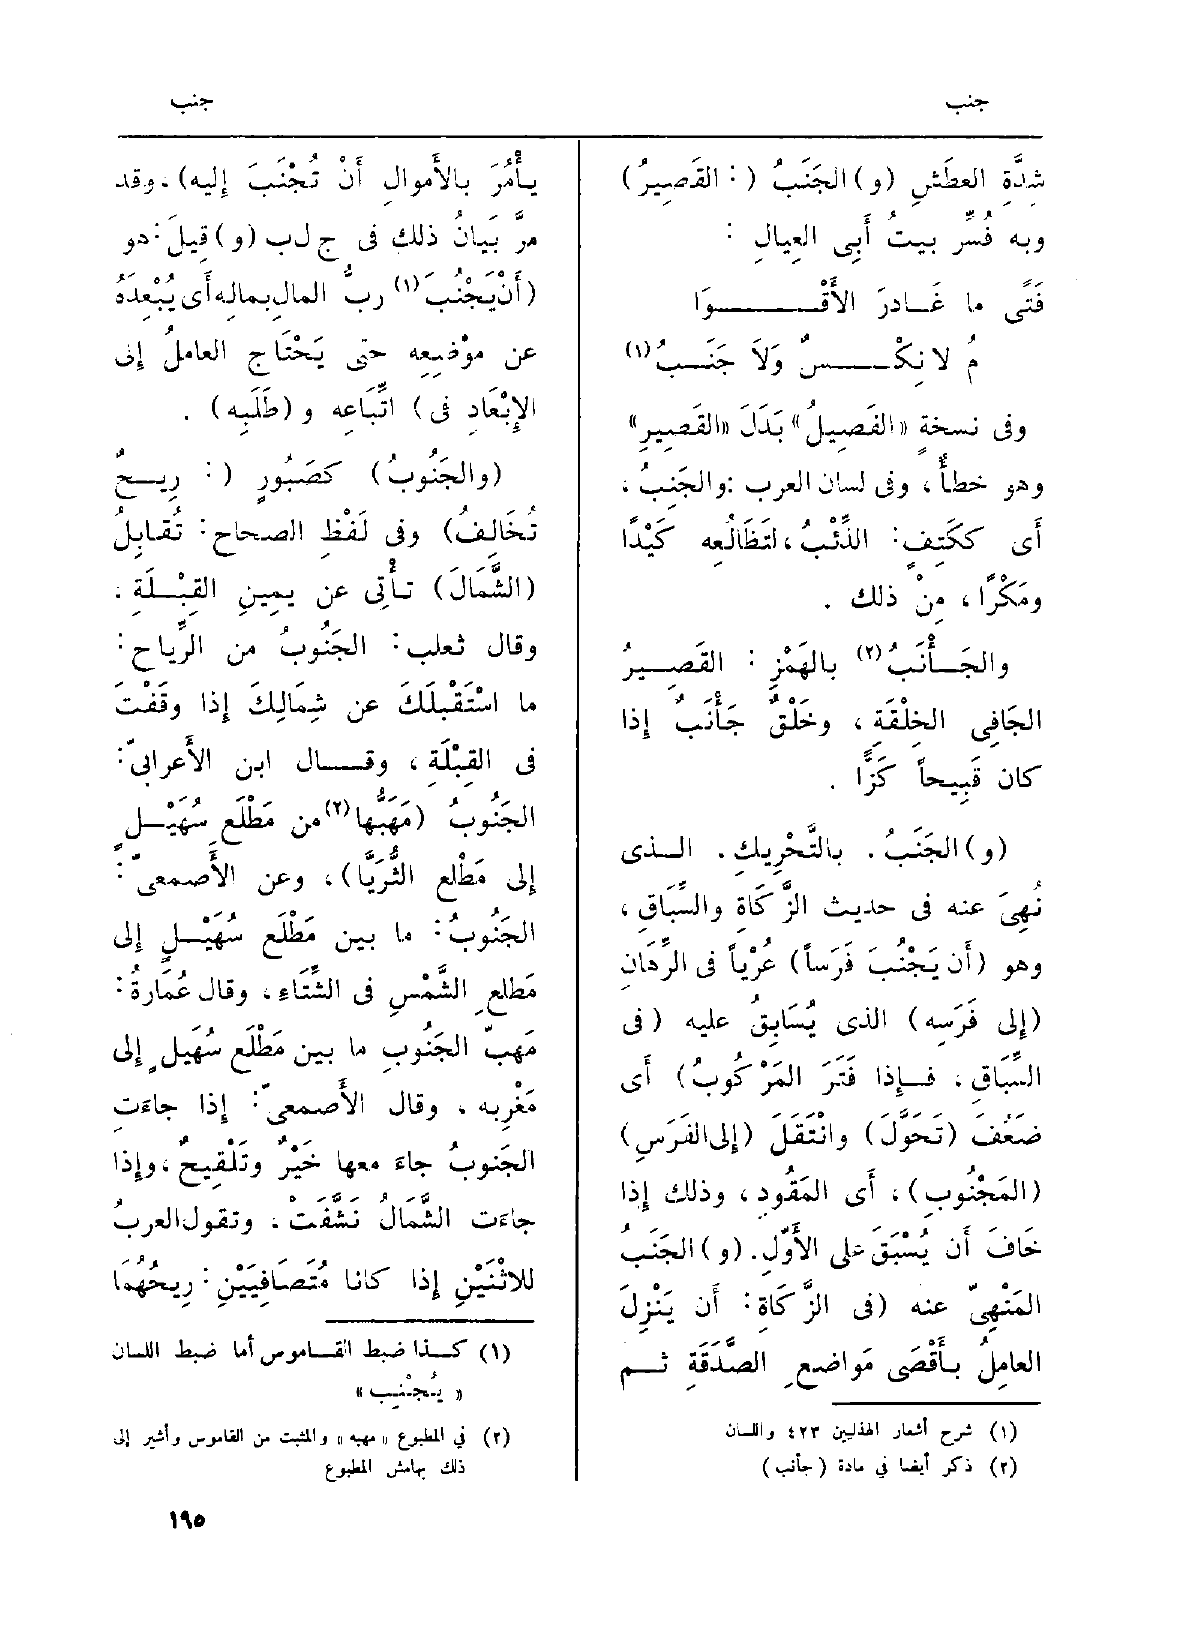 جنب
جنب
شدَّةِ العطَشِ (و) الجَنَبُ ( : القَصِيرُ )
وبه فُسِّر بيتُ أَبِى العِيالِ :
فَتًى ما غَـادرَ الأَقْـــــوَا
مُ لا نِكْـــسٌ وَلاَ جَنَـبُ (١)
وفى نسخةٍ «الفَصِيلُ» بَدَلَ «القَصِيرِ»
وهو خطأٌ ، وفى لسان العرب : والجَنِبُ ،
أى ككَتِفٍ : الذِّئْبُ ، لتَظَالُعِه كَيْدًا
ومَكْرًا ، مِنْ ذلك .
والجَــأْنَبُ (٢) بالهَمْزِ : القَصِيــرُ
الجَافِى الخِلْقَة ، وخَلْقٌ جَأْنَبٌ إذا
كان قَبِيحاً كَزًّا .
(و) الجَنَبُ . بالتَّحْرِيكِ . الـذى
نُهِىَ عنه فى حديث الزَّكَاةِ والسِّبَاقِ ،
وهو (أَن يَجْنُبَ فَرَساً) عُرْياً فى الرِّهَانِ
(إلى فَرَسِه) الذى يُسَابِقُ عليه (فى
السِّبَاقِ ، فـإذا فَتَرَ المَرْكُوبُ) أى
ضَعُفَ (تَحَوَّلَ) وانْتَقَلَ (إلى الفَرَسِ)
(المَجْنُوبِ) ، أَى المَقُودِ ، وذلك إذا
خَافَ أن يُسْبَقَ على الأَوَّلِ . (و) الجَنَبُ
المَنْهِىّ عنه (فى الزَّكَاةِ : أن يَنْزِلَ
العامِلُ بـأَقْصَى مَواضعِ الصَّدَقَةِ ثـم
(١) شرح أشعار الهذليين ٤٢٣ واللسان
(٢) ذكر أيضا في مادة (جأنب)
يـأْمُرَ بالأَموالِ أَنْ تُجْنَبَ إليه) . وقد
مرَّ بَيَانُ ذلك فى ج ل ب (و) قِيلَ : هو
(أَنْ يَجْنُبَ (١) ربُّ المالِ بمالِه أَى يُبْعِدَهُ
عن موْضِعِه حتى يَحْتَاجِ العامِلُ إلى
الإِبْعَادِ فى) اتِّبَاعِه و (طَلَبِه) .
(والجَنُوبُ) كصَبُورٍ ( : رِيـحٌ
تُخَالِفُ) وفى لَفْظِ الصحاح : تُقَابِلُ
(الشَّمَالَ) تـأْتِى عن يمِينِ القِبْــلَةِ .
وقال ثعلب : الجَنُوبُ من الرِّياحِ :
ما اسْتَقْبَلَكَ عن شِمَالِكَ إذا وقَفْتَ
فى القِبْلَةِ ، وقــال ابن الأَعرابىّ :
الجَنُوبُ (مَهَبُّها (٢) من مَطْلَعِ سُهَيْــلٍ
إلى مَطْلَعِ الثُّرَيَّا) ، وعن الأَصمعىّ :
الجَنُوبُ : ما بين مَطْلَعِ سُهَيْــلٍ إلى
مَطلعِ الشَّمْسِ فى الشِّتَاءِ ، وقال عُمَارةُ :
مَهَبّ الجَنُوبِ ما بين مَطْلَعِ سُهَيْلٍ إلى
مَغْرِبِه ، وقال الأَصمعىّ : إذا جاءَت
الجَنوبُ جاءَ معها خَيْرٌ وتَلْقِيحٌ ، وإذا
جاءَت الشَّمَالُ نَشَّفَتْ ، وتقول العربُ
للاثْنَيْنِ إذا كانا مُتَصَافِيَيْنِ : رِيحُهُمَا
(١) كــذا ضبط القــاموس أما ضبط اللسان
« يُـجـنِب »
(٢) في المطبوع « مهبه » والمثبت من القاموس وأشير إلى
ذلك بهامش المطبوع
١٩٥